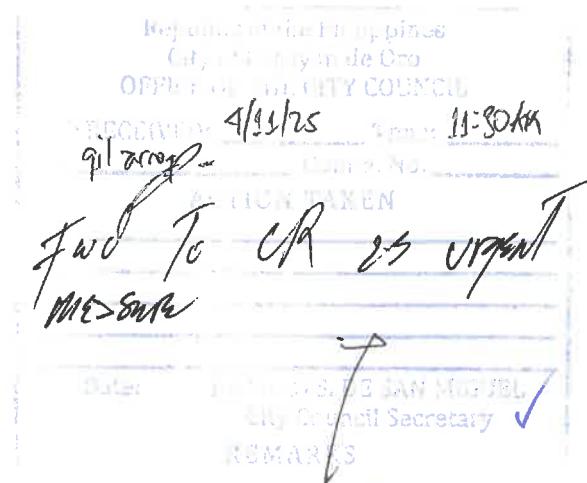 Republic of the Philippines
City of Cagayan de Oro
OFFICE OF THE CITY COUNCIL
RECEIVED: 4/11/25 Time: 11:30AM
No.
ACTION TAKEN
Fwd To CR as urgent
measure
Date: S. DE SAN MIGUEL
City Council Secretary
REMARKS